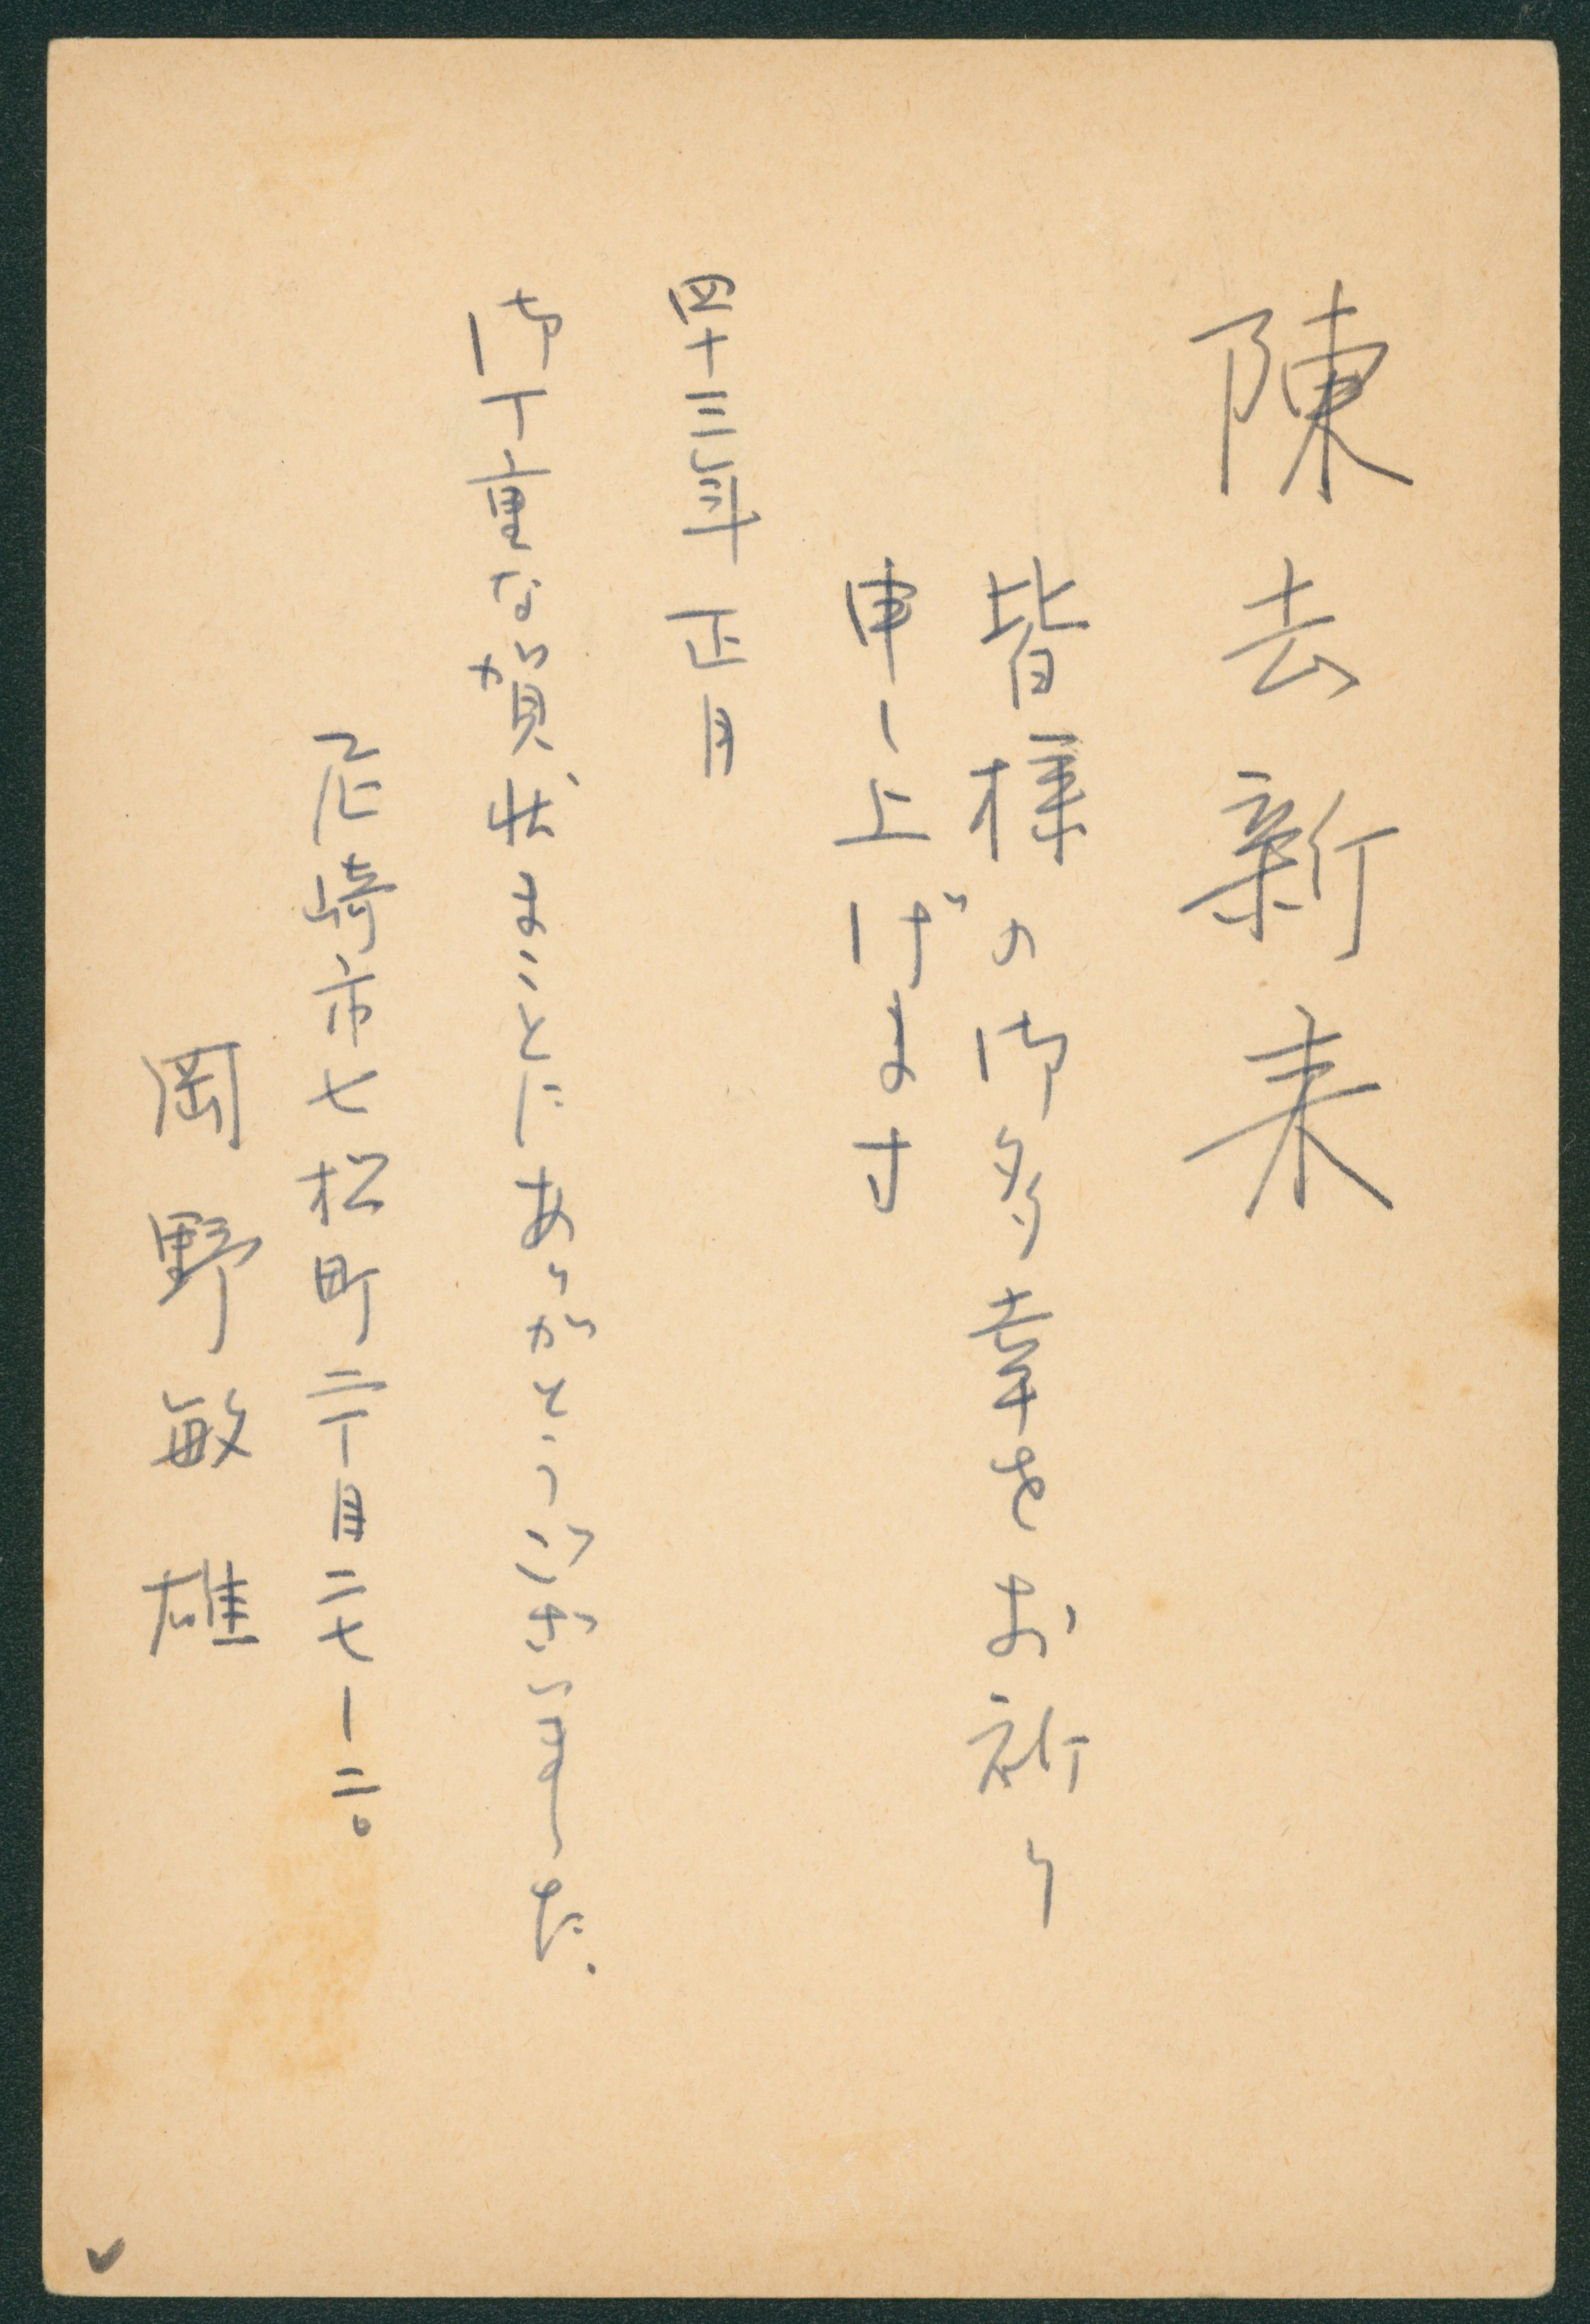 陳去新来
皆様の御多幸をお祈り
申し上げます
四十三年 正月
御丁重な賀状まことにありがとうございました.
尼崎市七松町二丁目二七ー二〇
岡野敏雄